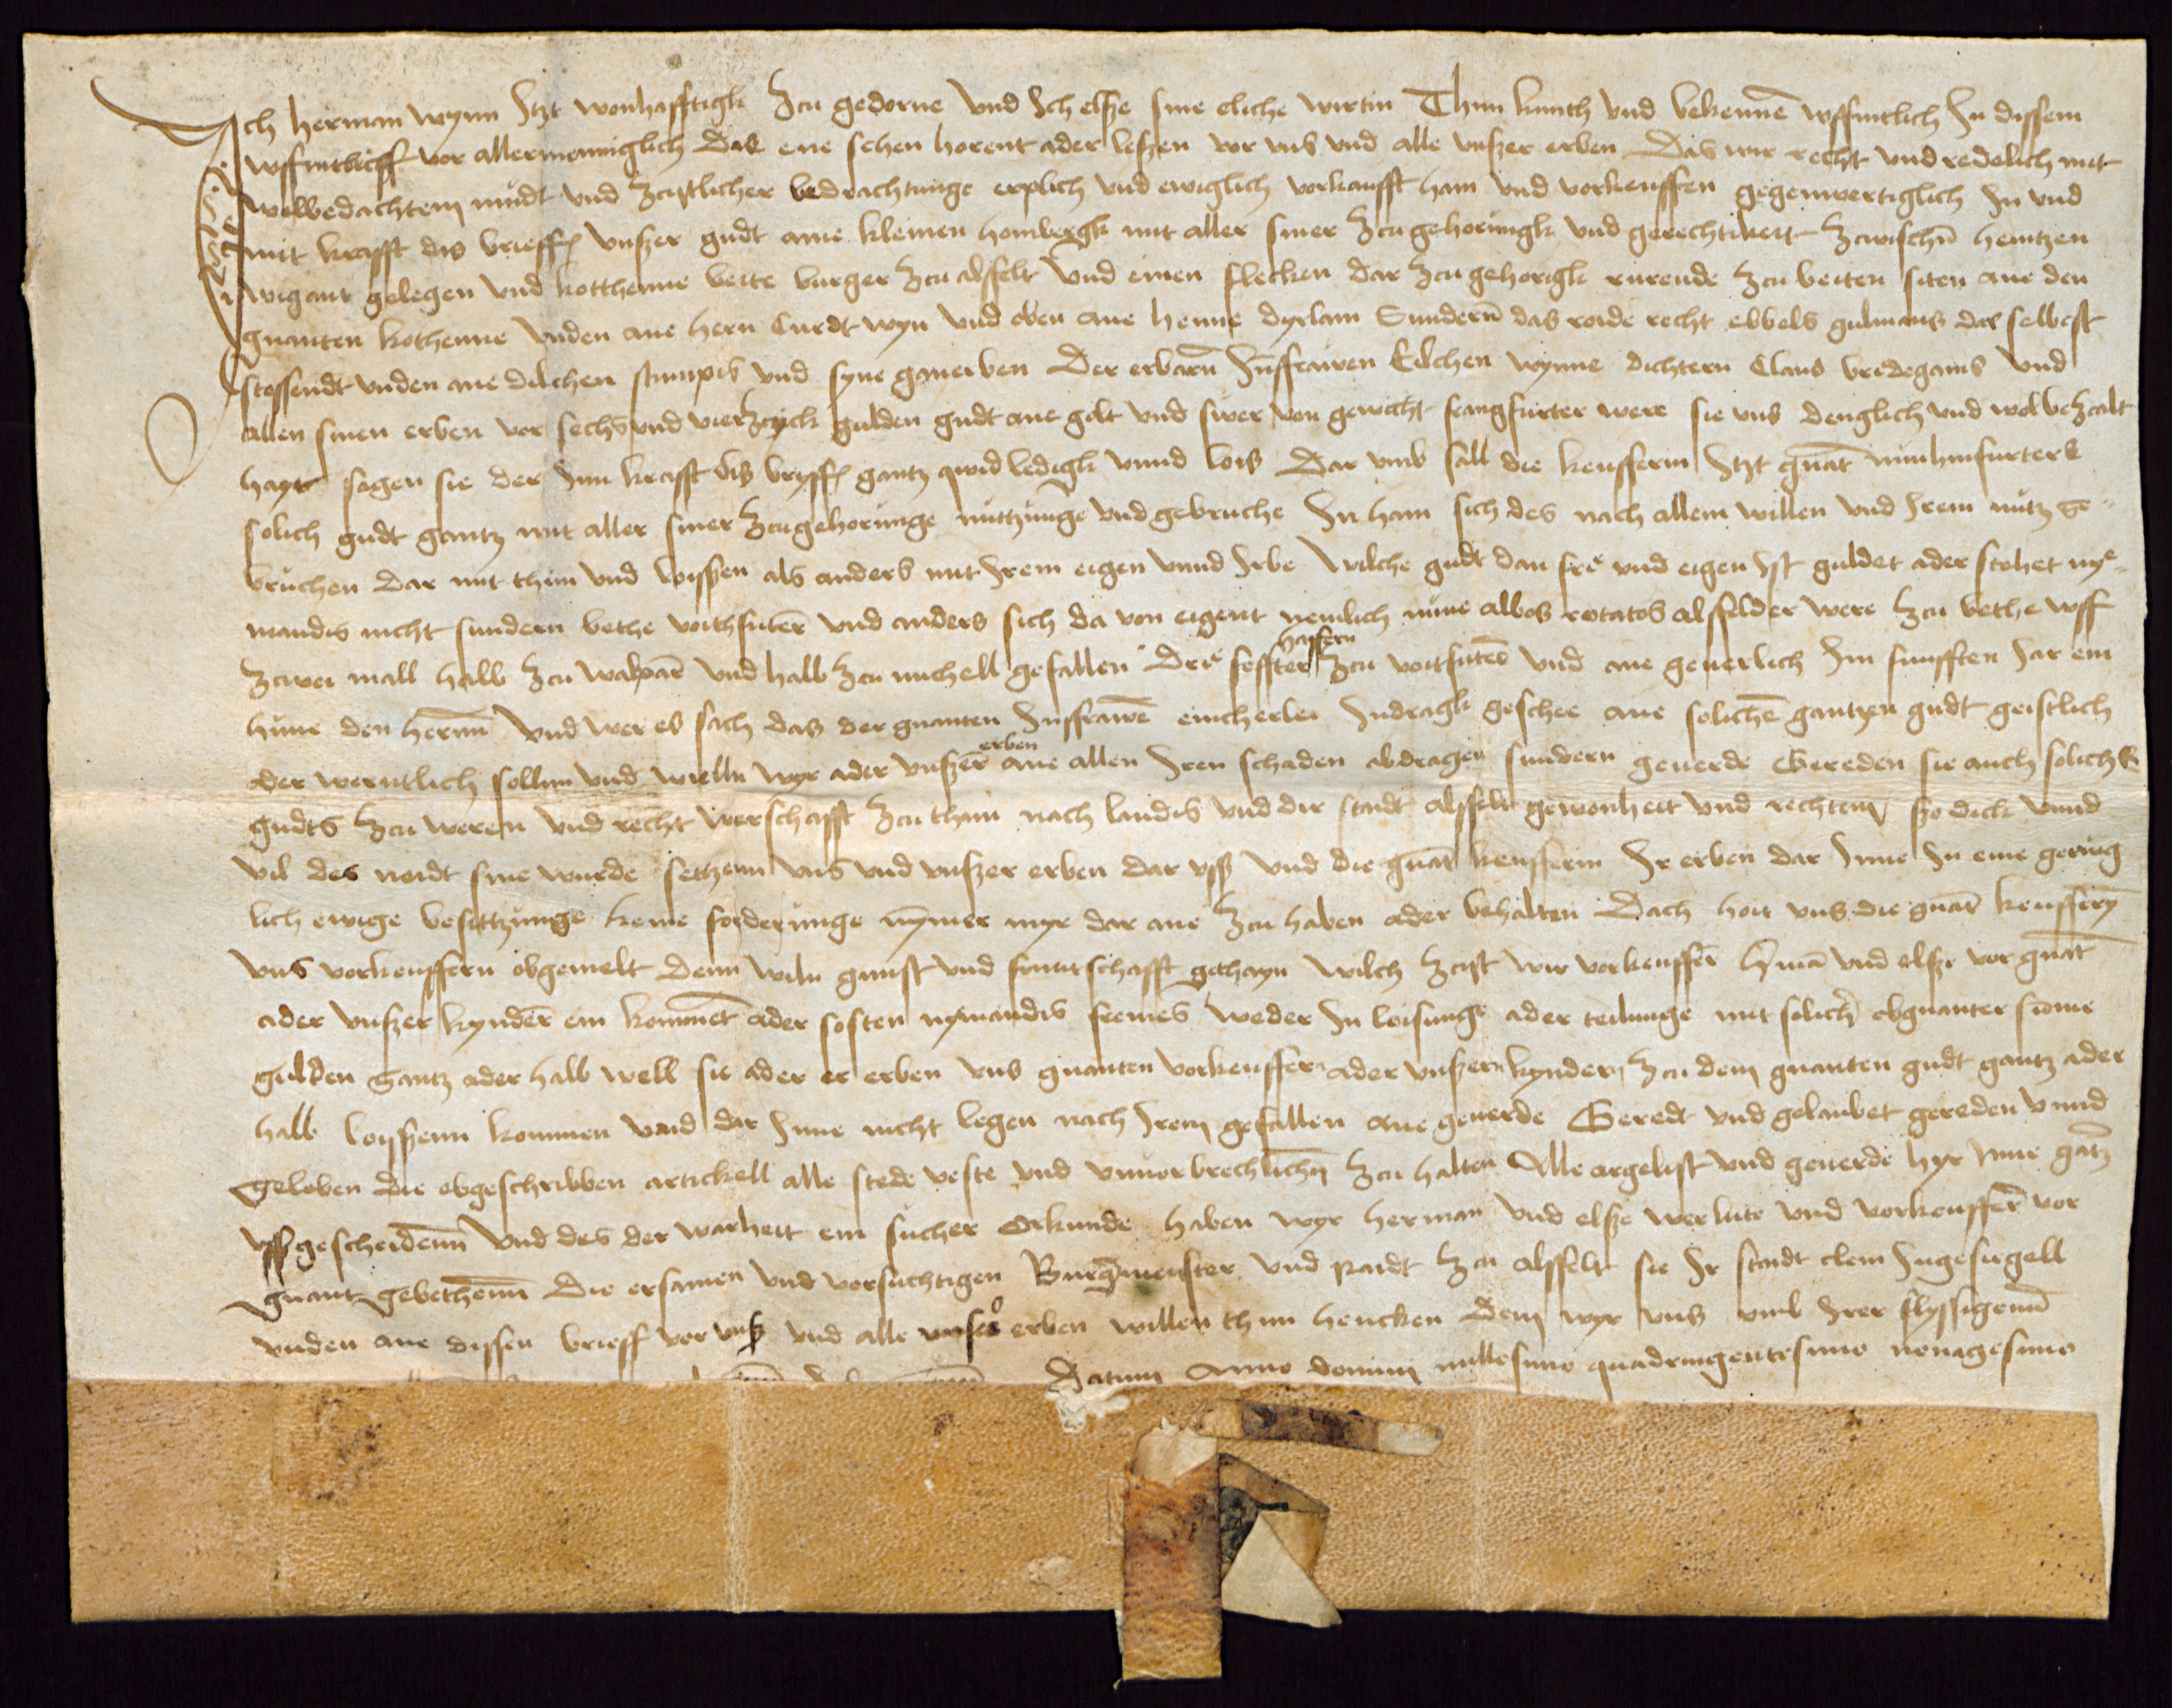 Ich Herman wynn Itzt wonhafftigk Zcu gedorne Vnd Ich elsze sine eliche wirtin Thun kunth vnd bekennē vffintlich In dissem
vffintbrieff vor allermenniglich Die ene sehen horent ader leszen vor vns vnd alle vnszer erben Das wir recht vnd redelich mit
wolbedachtem mudt vnd Zcytlicher bedrachtunge erplich vnd ewiglich vorkaufft han vnd vorkeuffen gegenwertiglich In vnd
mit krafft dis brieffs Vnszer gudt ame kleinen hombergk mit aller siner Zcu gehorungk vnd gerechtikeit Zcwischū heintzen
wigant gelegen vnd kotthenne beite burger Zcu alsfelt vnd einen flecken dar Zcu gehorigk rurende Zcu beiten siten ane den
gnanten kothenne vnden ane hern Curdt wyn vnd oben ane henne dyrlam Sundern̄ das rode recht ebbels gulmans dar selbest
stossendt vnden ane dilchen stumpis vnd syne ganerben Der erbarn̄ Iūffrawen Eilchen wynne dichtern Claus bredegams vnd
allen sinen erben vor sechs vnd vierzcyck gulden gudt ane golt vnd swer von gewicht frangfurter were sie vns denglich vnd wolbeZcalt
hayt sagen sie der Inn krafft dis bryffs gantz qwid ledigk vnnd lois Dar vmb sall die keufferin Itzt gnāt nunhinfurters
solich gudt gantz mit aller siner Zcugehorunge nutzunge vnd gebruche In han sich des nach allem willen vnd Irem nutz ge-
bruchen dar mit thun vnd loisszen als anders mit Irem eigen vnnd Irbe Wilche gudt dan frē vnd eigen Ist guldet ader stehet nye-
mandis nicht sundern bethe voithfuter vnd anders sich da von eigent nemlich nūne albos rotatos alsfelder were Zcu bethe vff
Zcwei mall halb Zcu walpar vnd halb Zcu michell gefallen Drie seffter haffern Zcu voitfuter vnd ane geuerlich Im funfften Iar ein
hune den hern̄n Vnd wer es sach das der gnanten Iuffrawē eincherlei Indragk geschee ane solichē gantzen gudt geistlich
oder werntlich sollnn vnd wielln wyr ader vnszer erben ane allen Iren schaden abdragen sundern geuerde Gereden sie auch solichs
gudts Zcu weren vnd recht werschafft Zcu thun nach landis vnd der stadt alsfelt gewonheit vnd rechtem so dick vnnd
vil des noidt sine wurde setzenn vns vnd vnszer erben dar vsz vnd die gnāt keufferin Ir erben dar Inne In eine gering
lich ewige besittzunge keine forderunge nymer myr dar ane Zcu haben ader behalten Dach hoit vns die gnāt keufferȳ
vns vorkeuffern obgemelt denn wiln gunst vnd fruntschafft gethayn Wilch Zcyt wir vorkeuffer hmā vnd elsze vor gnāt
ader vnszer kynder ein kommet ader sosten nymandis fremes weder In loisunge ader teilunge mit solicher obgnanter sūme
gulden Gantz ader halb well sie ader er erben vns gnanten vorkeuffern ader vnszern kyndern Zcu dem gnanten gudt gantz ader
halb loiszenn kommen vnnd dar Inne nicht legen nach Irem gefallen ane geuerde Geredt vnd gelaubet gereden vnnd
geloben die obgeschribben artickell alle stede veste vnd vnuorbrechlichn̄ Zcu halten Alle argelist vnd geuerde hyr Inne gātz
vszgescheidenn̄ Vnd des der warheit ein sucher Orkunde haben wyr Herman vnd elsze werlute vnd vorkeuffer vor
gnant gebethenn̄ Die ersamen vnd vorsuchtigen Burgmeinster vnd Raidt Zcu alsfelt sie Ir stadt clein Ingesiegell
vnden ane dissen brieff vor vnsz vnd alle vnser erben willen thun hencken Dem wyr vns vmb Irer flyssigenn̄
Datum Anno domini millesimo quadringentesimo nonagesimo